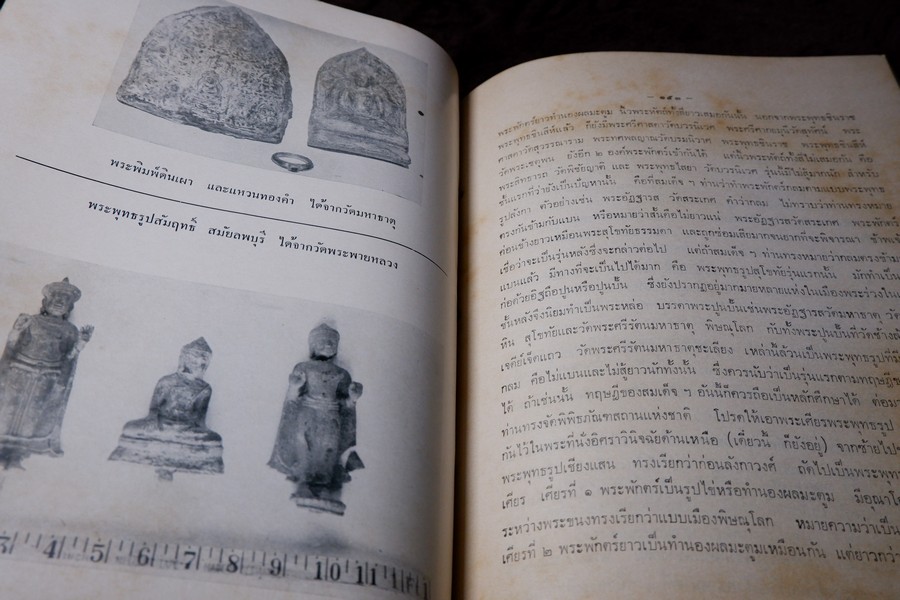 พระพิมพ์ดินเผา และแหวนทองคำ ได้จากวัดมหาธาตุ
พระพุทธรูปสัมฤทธิ์ สมัยลพบุรี ได้จากวัดพระพายหลวง
4 5 6 7 8 9 10 11
พระพักตร์ยาวทำนองผลมะตูม นิ้วพระหัตถ์ทั้งสี่ยาวเสมอกันนั้น นอกจากพระพุทธชินราช
พระพุทธชินสีห์แล้ว ก็ยังมีพระศรีศาสดาวัดบวรนิเวศ พระศรีศากยมุนีวัดสุทัศน์ พระ
ศาสดาวัดสุวรรณาราม พระทศพลญาณวัดบรมนิวาศ พระพุทธชินราช พระพุทธชินสีห์
วัดพระเชตุพน ยังอีก ๒ องค์พระพักตร์เข้ากันได้ แต่นิ้วพระหัตถ์ทั้งสี่ไม่เสมอกัน คือ
พระสิทธารถ วัดพิชัยญาติ และ พระพุทธไสยา วัดบวรนิเวศ รุ่นนี้มีไม่สู้มากนัก สำหรับ
ชั้นแรกที่ว่ายังเป็นปัญหานั้น คือที่สมเด็จ ฯ ท่านว่าทำพระพักตร์กลมตามแบบพระพุทธ
รูปลังกา ตัวอย่างเช่น พระอัฏฐารส วัดสระเกศ คำว่ากลม ไม่ทราบว่าท่านทรงหมาย
ตรงกันข้ามกับแบน หรือหมายว่าสั้นคือไม่ยาวแน่ พระอัฏฐารสวัดสระเกศ พระพักตร์
ค่อนข้างยาวเหมือนพระสุโขทัยธรรมดา และถูกซ่อมเสียมากจนยากที่จะพิจารณา ข้าพเจ้
เชื่อว่าจะเป็นรุ่นหลังซึ่งจะกล่าวต่อไป แต่ถ้าสมเด็จ ฯ ท่านทรงหมายว่ากลมตรงข้าม
แบนแล้ว มีทางที่จะเป็นไปได้มาก คือ พระพุทธรูปสุโขทัยรุ่นแรกนั้น มักทำเป็น
ก่อด้วยอิฐถือปูนหรือปูนปั้น ซึ่งยังปรากฏอยู่มากมายหลายแห่งในเมืองพระร่วงใน
ชั้นหลังจึงนิยมทำเป็นพระหล่อ บรรดาพระปูนปั้นเช่นพระอัฏฐารสวัดมหาธาตุ วัด
หิน สุโขทัยและวัดพระศรีรัตนมหาธาตุ พิษณุโลก กับทั้งพระปูนปั้นที่วัดช้างล้
เจดีย์เจ็ดแถว วัดพระศรีรัตนมหาธาตุชะเลียง เหล่านี้ล้วนเป็นพระพุทธรูปที่มี
กลม คือไม่แบนและไม่สู้ยาวนักทั้งนั้น ซึ่งควรนับว่าเป็นรุ่นแรกตามทฤษฎีข
ได้ ถ้าเช่นนั้น ทฤษฎีของสมเด็จ ฯ อันนี้ก็ควรถือเป็นหลักศึกษาได้ ต่อมา
ท่านทรงจัดพิพิธภัณฑสถานแห่งชาติ โปรดให้เอาพระเศียรพระพุทธรูป
กันไว้ในพระที่นั่งอิศราวินิจฉัยด้านเหนือ (เดี๋ยวนี้ ก็ยังอยู่) จากซ้ายไป
พระพุทธรูปเชียงแสน ทรงเรียกว่าก่อนลังกาวงศ์ ถัดไปเป็นพระพุท
เศียร เศียรที่ ๑ พระพักตร์เป็นรูปไข่หรือทำนองผลมะตูม มีอุณาโ
ระหว่างพระขนงทรงเรียกว่าแบบเมืองพิษณุโลก หมายความว่าเป็น
เศียรที่ ๒ พระพักตร์ยาวเป็นทำนองผลมะตูมเหมือนกัน แต่ยาวกว่า